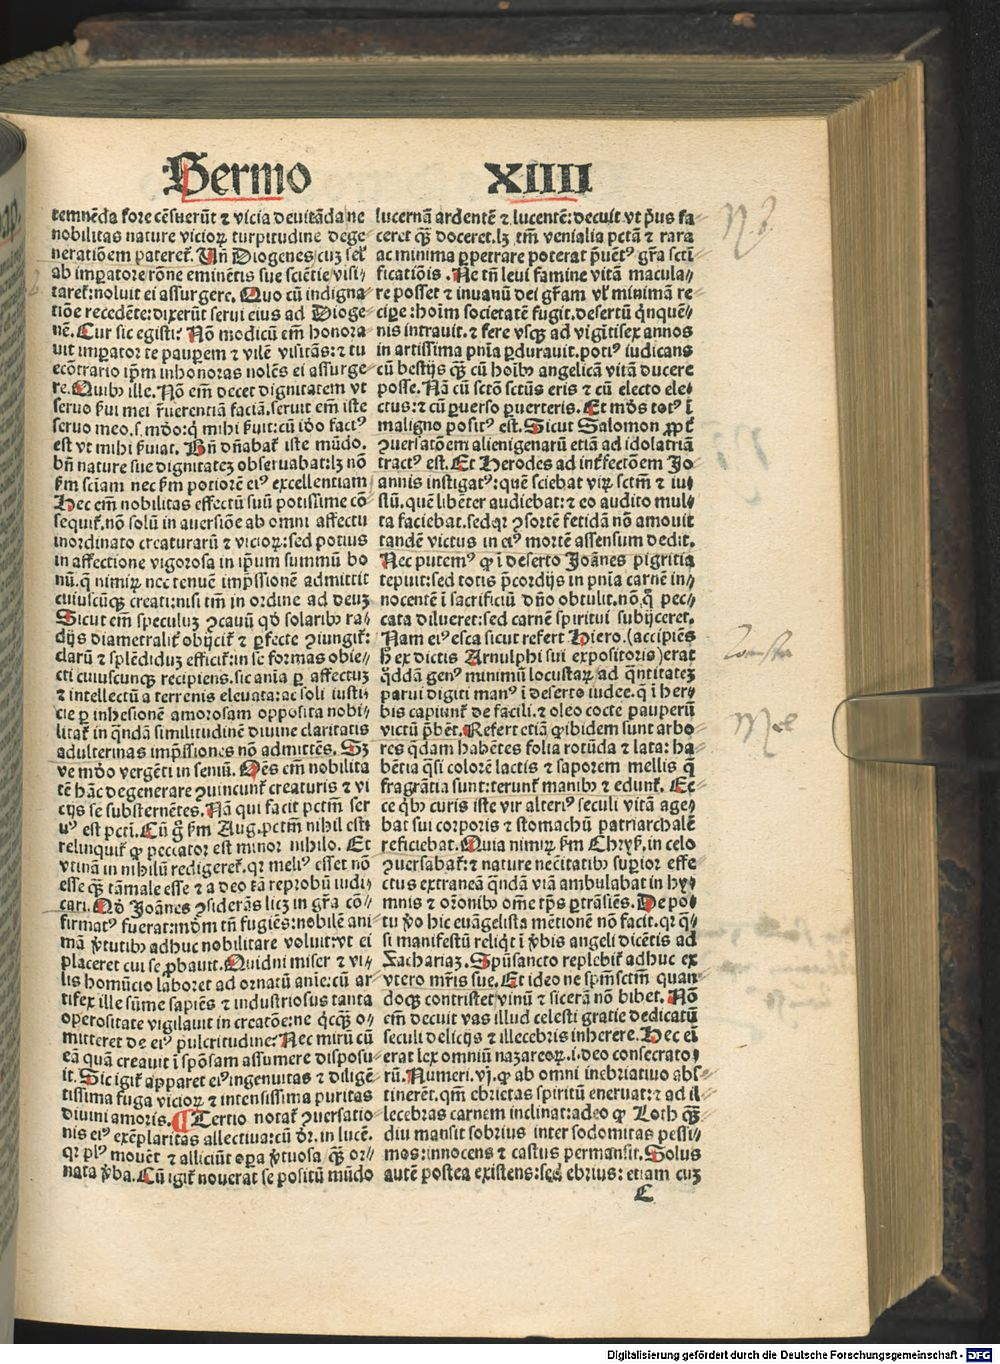 Sermo XIIII
temnēda fore cēsuerūt ⁊ vicia deuitāda ne
nobilitas nature vicioꝝ turpitudine dege
neratiōem pateret᷑. Uñ Diogenes cuꝫ sel̓
ab imꝑatore rōne eminētis sue sciētie visi⸗
taret᷑: noluit ei assurgere. Quo cū indigna
tiōe recedēte: dixerūt serui eius ad Dioge
nē. Cur sic egisti? Nō modicū em̄ honora
uit imꝑator te pauꝑem ⁊ vilē visitās: ⁊ tu
ecōtrario ip̄m inhonoras nolēs ei assurge
re. Quibꝰ ille. Nō em̄ decet dignitatem vt
seruo ẜui mei r̄uerentiā faciā. seruit em̄ iste
seruo meo .s. mūdo: ꝗ mihi ẜuit: cū iō factꝰ
est vt mihi ẜuiat. Bn̄ dn̄abat᷑ iste mūdo.
bn̄ nature sue dignitateꝫ obseruabat: lꝫ nō
ẜm sciam nec ẜm potiorē eiꝰ excellentiam
Hec em̄ nobilitas effectū suū potissime cō
sequit᷑. nō solū in auersiōe ab omni affectu
inordinato creaturarū ⁊ vicioꝝ: sed potius
in affectione vigorosa in ip̄um summū bo
nū. ꝗ nimiꝝ nec tenuē imp̄ssionē admittit
cuiuscūqꝫ creati: nisi tm̄ in ordine ad deuꝫ
Sicut em̄ speculuꝫ ꝯcauū qd̓ solaribꝰ ra⸗
dijs diametralit᷑ obijcit᷑ ⁊ ꝑfecte ꝯiungit᷑:
clarū ⁊ splēdiduꝫ efficit᷑: in se formas obie⸗
cti cuiuscunqꝫ recipiens. sic aīa ꝑ affectuꝫ
⁊ intellectū a terrenis eleuata: ac soli iusti⸗
cie ꝑ inhesionē amorosam opposita nobi⸗
litat᷑ in ꝗndā similitudinē diuine claritatis
adulterinas imp̄ssiones nō admittēs. Sꝫ
ve mūdo vergēti in seniū. Oēs em̄ nobilita
tē hāc degenerare ꝯuincunt᷑ creaturis ⁊ vi
cijs se substernētes. Nā qui facit pctm̄ ser
uꝰ est pcti. Cū g̊ ẜm Aug. pctm̄ nihil esti
relinquit᷑ ꝙ peccator est minor nihilo. Et
vtinā in nihilū redigeret᷑. qꝛ meliꝰ esset nō
esse qꝫ̄ tāmale esse ⁊ a deo tā reprobū iudi⸗
cari. Qd̓ Joānes ꝯsiderās licꝫ in gr̄a cō⸗
firmatꝰ fuerat: mūdm̄ tn̄ fugiēs: nobilē ani⸗
mā v̓tutibꝰ adhuc nobilitare voluit: vt ei
placeret cui se ꝓbauit. Quidni miser ⁊ vi⸗
lis homūcio laboret ad ornatū anīe: cū ar⸗
tifex ille sūme sapiēs ⁊ industriosus tanta
operositate vigilauit in creatōe: ne qͥcqꝫ̄ o⸗
mitteret de eiꝰ pulcritudine? Nec mirū cū
eā quā creauit ī spōsam assumere disposu⸗
it. Sic igit᷑ apparet eiꝰ ingenuitas ⁊ diligē⸗
tissima fuga vicioꝝ ⁊ intensissima puritas
diuini amoris. ¶ Tertio notat᷑ ꝯuersatio⸗
nis eiꝰ exēplaritas allectiua: cū dr̄. in lucē.
qꝛ plꝰ mouēt ⁊ alliciūt oꝑa v̓tuosa qꝫ̄ or⸗
nata v̓ba. Cū igit᷑ nouerat se positū mūdo
lucernā ardentē ⁊ lucentē: decuit vt p̓us fa⸗
ceret qꝫ̄ doceret. lꝫ tm̄ venialia pctā ⁊ rara
ac minima ꝑpetrare poterat p̄uētꝰ gr̄a scti
ficatiōis. Ne tn̄ leui famine vitā macula⸗
re posset ⁊ inuanū dei gr̄am vl̓ minimā re⸗
cipe: hoīm societatē fugit. desertū qͥnquē⸗
nis intrauit. ⁊ fere vsqꝫ ad vigītisex annos
in artissima pn̄ia ꝑdurauit. potiꝰ iudicans
cū bestijs qꝫ̄ cū hoībꝰ angelicā vitā ducere
posse. Nā cū sctō sctūs eris ⁊ cū electo ele⸗
ctus: ⁊ cū ꝑuerso ꝑuerteris. Et mūdꝰ totꝰ ī
maligno positꝰ est. Sicut Salomon ꝓpt᷑
ꝯuersatōem alienigenarū etiā ad idolatriā
tractꝰ est. Et Herodes ad int᷑fectōem Jo
annis instigatꝰ: quē sciebat viꝝ sctm̄ ⁊ iu⸗
stū. quē libēter audiebat: ⁊ eo audito mul⸗
ta faciebat. sed qꝛ ꝯsortē fetidā nō amouit
tandē victus in eiꝰ mortē assensum dedit.
Nec putemꝰ ꝙ ī deserto Joānes pigritia
tepuit: sed totis p̄cordijs in pn̄ia carnē in⸗
nocentē ī sacrificiū dn̄o obtulit. nō ꝙ̄ pec⸗
cata dilueret: sed carnē spiritui subijceret.
Nam eiꝰ esca sicut refert Hiero. (accipiēs
h̄ ex dictis Arnulphi sui expositoris) erat
qd̄dā genꝰ minimū locustaꝝ ad qͣntitatēꝫ
parui digiti manꝰ ī deserto iudee. ꝗ ī her⸗
bis capiunt᷑ de facili. ⁊ oleo cocte pauperū
victū p̄bēt. Refert etiā ꝙ ibidem sunt arbo
res qͥdam habētes folia rotūda ⁊ lata: ha⸗
bētia qͣsi colorē lactis ⁊ saporem mellis ꝗ
fragrātia sunt: terunt᷑ manibꝰ ⁊ edunt᷑. Ec⸗
ce qͥbꝰ curis iste vir alteriꝰ seculi vitā age⸗
bat sui corporis ⁊ stomachū patriarchalē
reficiebat. Quia nimiꝝ ẜm Chryẜ. in celo
ꝯuersabat᷑: ⁊ nature nec̄itatibꝰ suꝑior effe⸗
ctus extraneā qͣndā viā ambulabat in hy⸗
mnis ⁊ or̄onibꝰ om̄e tp̄s ꝑtrāsiēs. De po⸗
tu v̓o hic euāgelista mētionē nō facit. qꝛ qͣ⸗
si manifestū reliqͥt ī v̓bis angeli dicētis ad
Zachariaꝫ. Spūsancto replebit᷑ adhuc ex
vtero mr̄is sue. Et ideo ne spm̄sctm̄ quan
doqꝫ contristet vinū ⁊ sicerā nō bibet. Nō
em̄ decuit vas illud celesti gratie dedicatū
seculi delicijs ⁊ illecebris inherere. Hec ei̇
erat lex omniū nazareoꝝ .i. deo consecrato⸗
rū. Numeri. vj. ꝙ ab omni inebriatiuo abs⸗
tinerēt. qm̄ ebrietas spiritū eneruat: ⁊ ad il⸗
lecebras carnem inclinat: adeo ꝙ Loth qꝫ̄
diu mansit sobrius inter sodomitas pessi⸗
mos: innocens ⁊ castus permansit. Solus
autē postea existens: sed ebrius: etiam cuꝫ
C
N. b.
Locusta
Mel
Digitalisierung gefördert durch die Deutsche Forschungsgemeinschaft - DFG